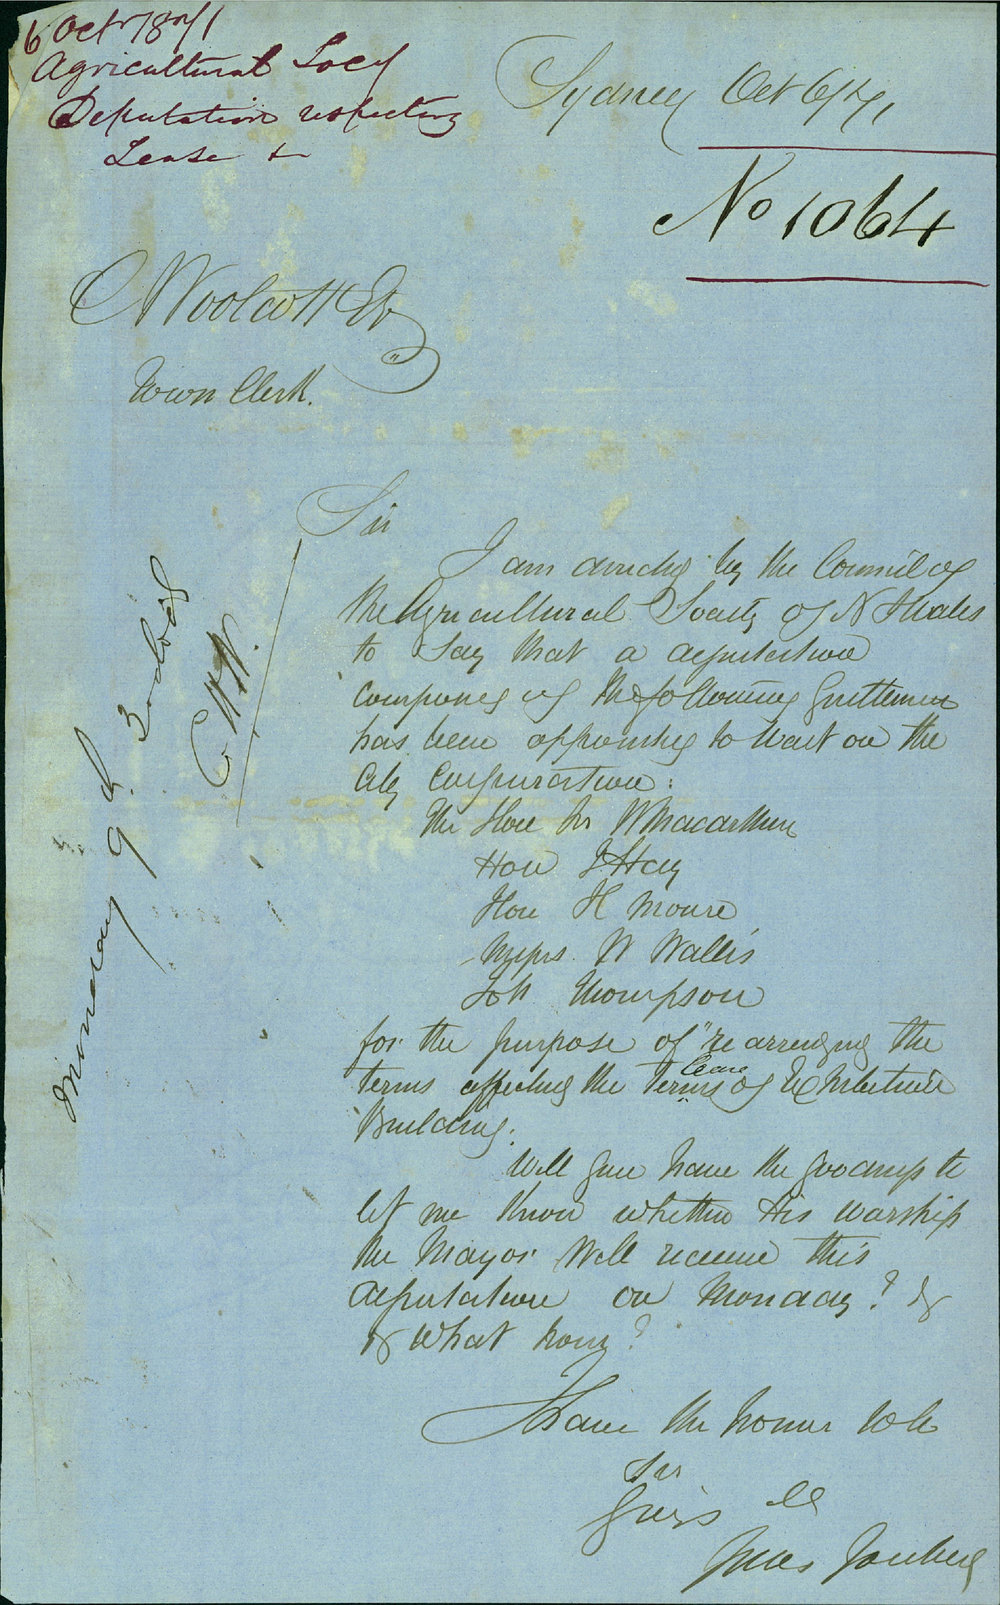 6 Octr 1871
Agricultural Socy
Deputation respecting
Lease &
Sydney Oct 6/71
No 1064
C Woolcott Esq
Town Clerk.
Sir
I am directed by the Council of
the Agricultural Society of N S Wales
to say that a deputation
composed of the following Gentlemen
has been appointed to wait on the
City Corporation:
The Hon Sir W Macarthur
Hon J Hay
Hon H Moore
Messrs. W Wallis
Jos Thompson
for the purpose of "re arranging the
terms affecting the terms of Exhibition
Lease
Building.
Will you have the goodness to
let me know whether His Worship
the Mayor will receive this
deputation on Monday? &
& what hour?
I have the honor to be
Sir
Yours &c
Jules Joubert
Monday 9th 3 o'clock
C H W.